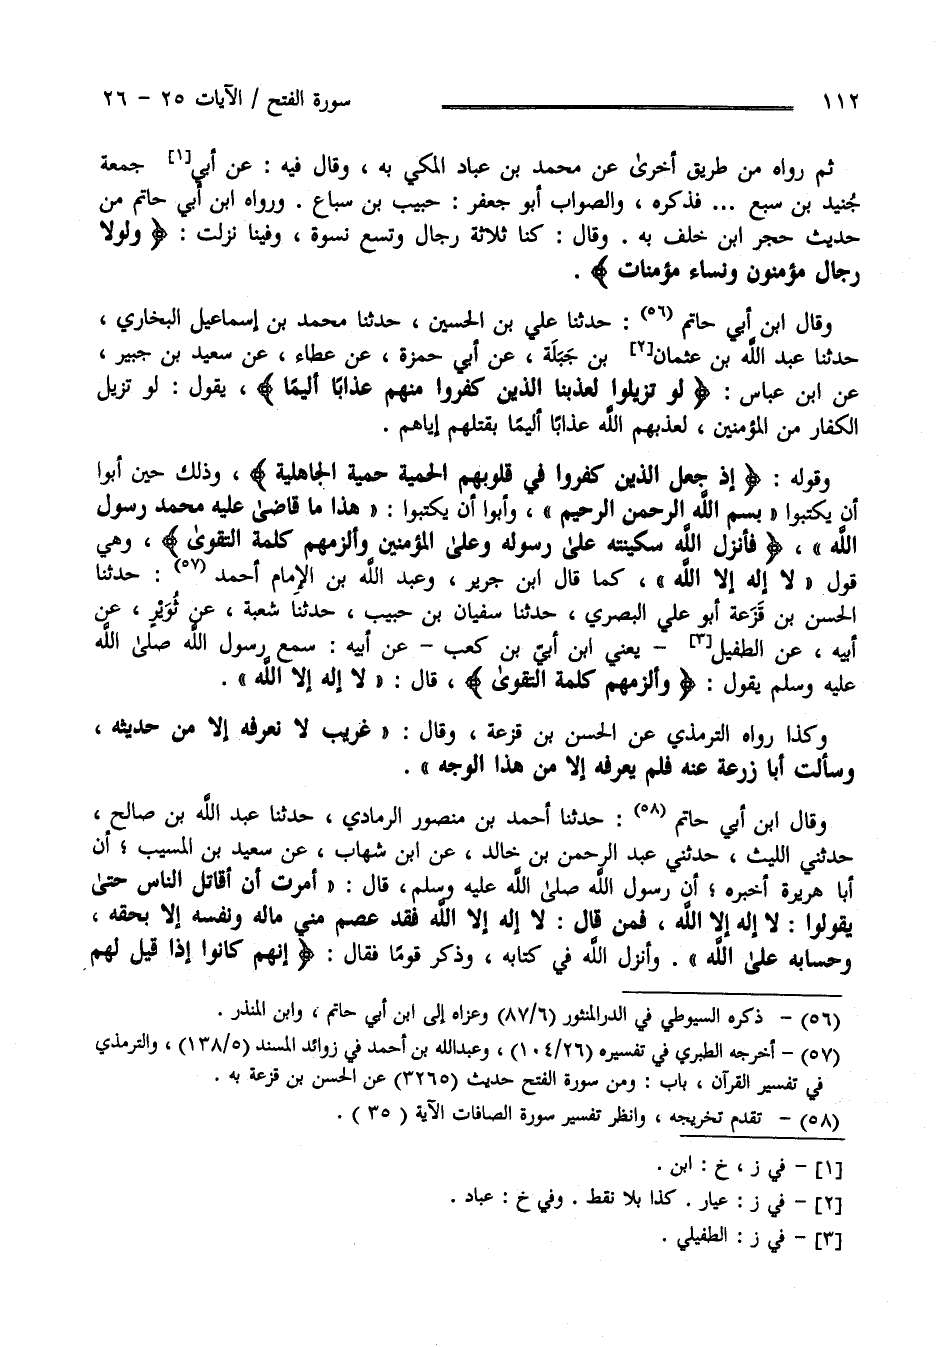 ١١٢ سورة الفتح / الآيات ٢٥ - ٢٦
ثم رواه من طريق أخرىٰ عن محمد بن عباد المكي به ، وقال فيه : عن أبي[١] جمعة
جُنيد بن سبع ... فذكره ، والصواب أبو جعفر : حبيب بن سباع . ورواه ابن أبي حاتم من
حديث حجر ابن خلف به . وقال : كنا ثلاثة رجال وتسع نسوة ، وفينا نزلت : ﴿ ولولا
رجال مؤمنون ونساء مؤمنات ﴾ .
وقال ابن أبي حاتم (٥٦) : حدثنا علي بن الحسين ، حدثنا محمد بن إسماعيل البخاري ،
حدثنا عبد اللَّه بن عثمان[٢] بن جَبَلَة ، عن أبي حمزة ، عن عطاء ، عن سعيد بن جبير ،
عن ابن عباس : ﴿ لو تزيلوا لعذبنا الذين كفروا منهم عذابًا أليمًا ﴾ ، يقول : لو تزيل
الكفار من المؤمنين ، لعذبهم اللَّه عذابًا أليمًا بقتلهم إياهم .
وقوله : ﴿ إذ جعل الذين كفروا في قلوبهم الحمية حمية الجاهلية ﴾ ، وذلك حين أبوا
أن يكتبوا « بسم اللَّه الرحمن الرحيم » ، وأبوا أن يكتبوا : « هذا ما قاضىٰ عليه محمد رسول
اللَّه » ، ﴿ فأنزل اللَّه سكينته علىٰ رسوله وعلىٰ المؤمنين وألزمهم كلمة التقوىٰ ﴾ ، وهي
قول « لا إله إلا اللَّه » ، كما قال ابن جرير ، وعبد اللَّه بن الإمام أحمد (٥٧) : حدثنا
الحسن بن قَزَعة أبو علي البصري ، حدثنا سفيان بن حبيب ، حدثنا شعبة ، عن ثُوَيْرٍ ، عن
أبيه ، عن الطفيل[٣] - يعني ابن أبيّ بن كعب - عن أبيه : سمع رسول اللَّه صلىٰ اللَّه
عليه وسلم يقول : ﴿ وألزمهم كلمة التقوىٰ ﴾ ، قال : « لا إله إلا اللَّه » .
وكذا رواه الترمذي عن الحسن بن قزعة ، وقال : « غريب لا نعرفه إلا من حديثه ،
وسألت أبا زرعة عنه فلم يعرفه إلا من هذا الوجه » .
وقال ابن أبي حاتم (٥٨) : حدثنا أحمد بن منصور الرمادي ، حدثنا عبد اللَّه بن صالح ،
حدثني الليث ، حدثني عبد الرحمن بن خالد ، عن ابن شهاب ، عن سعيد بن المسيب ؛ أن
أبا هريرة أخبره ؛ أن رسول اللَّه صلىٰ اللَّه عليه وسلم، قال : « أمرت أن أقاتل الناس حتىٰ
يقولوا : لا إله إلا اللَّه ، فمن قال : لا إله إلا اللَّه فقد عصم مني ماله ونفسه إلا بحقه ،
وحسابه علىٰ اللَّه » . وأنزل اللَّه في كتابه ، وذكر قومًا فقال : ﴿ إنهم كانوا إذا قيل لهم
(٥٦) - ذكره السيوطي في الدرالمنثور (٨٧/٦) وعزاه إلى ابن أبي حاتم ، وابن المنذر .
(٥٧) - أخرجه الطبري في تفسيره (١٠٤/٢٦) ، وعبدالله بن أحمد في زوائد المسند (١٣٨/٥) ، والترمذي
في تفسير القرآن ، باب : ومن سورة الفتح حديث (٣٢٦٥) عن الحسن بن قزعة به .
(٥٨) - تقدم تخريجه ، وانظر تفسير سورة الصافات الآية ( ٣٥ ) .
[١] - في ز ، خ : ابن .
[٢] - في ز : عيار . كذا بلا نقط . وفي خ : عباد .
[٣] - في ز : الطفيلي .